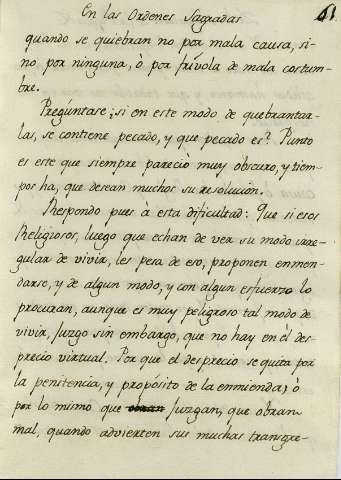 En las Ordenes Sagradas 61.
quando se quiebran no por mala causa, si-
no por ninguna, ò por frívola de mala costum-
bre.
Preguntase; si en este modo de quebrantar-
las, se contiene pecado, y que pecado es? Punto
es este que siempre pareciò muy obscuro, y tiem-
pos ha, que desean muchos su resolucion.
Respondo pues à esta dificultad: Que si esos
Religiosos, luego que echan de ver su modo irre-
gular de vivir, les pesa de eso, proponen enmen-
darse, y de algun modo, y con algun esfuerzo lo
procuran, aunque es muy peligroso tal modo de
vivir, juzgo sin embargo, que no hay en èl des-
precio virtual. Por que el desprecio se quita por
la penitencia, y propósito de la enmienda; ò
por lo mismo que obran juzgan, que obran
mal, quando advierten sus muchas transgre-